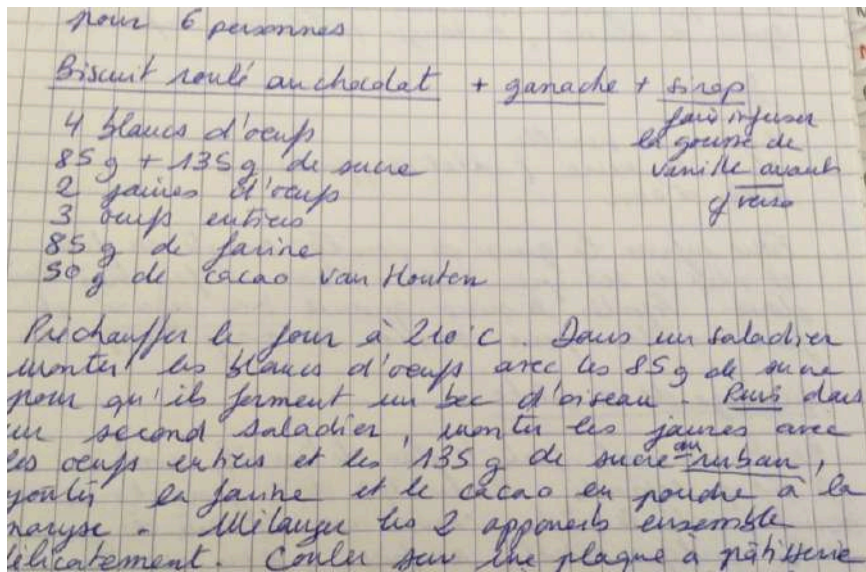 pour 6 personnes
Biscuit roulé au chocolat + ganache + sirop
faire infuser
la gousse de
vanille avant
cf verso
4 blancs d'oeufs
85 g + 135 g de sucre
2 jaunes d'oeufs
3 oeufs entiers
85 g de farine
50 g de cacao Van Houten
Préchauffer le four à 210°C. Dans un saladier
monter les blancs d'oeufs avec les 85 g de sucre
pour qu'ils forment un bec d'oiseau. Puis dans
un second saladier, monter les jaunes avec
les oeufs entiers et les 135 g de sucre au ruban,
ajouter la farine et le cacao en poudre à la
maryse. Mélanger les 2 appareils ensemble
délicatement. Couler sur une plaque à pâtisserie